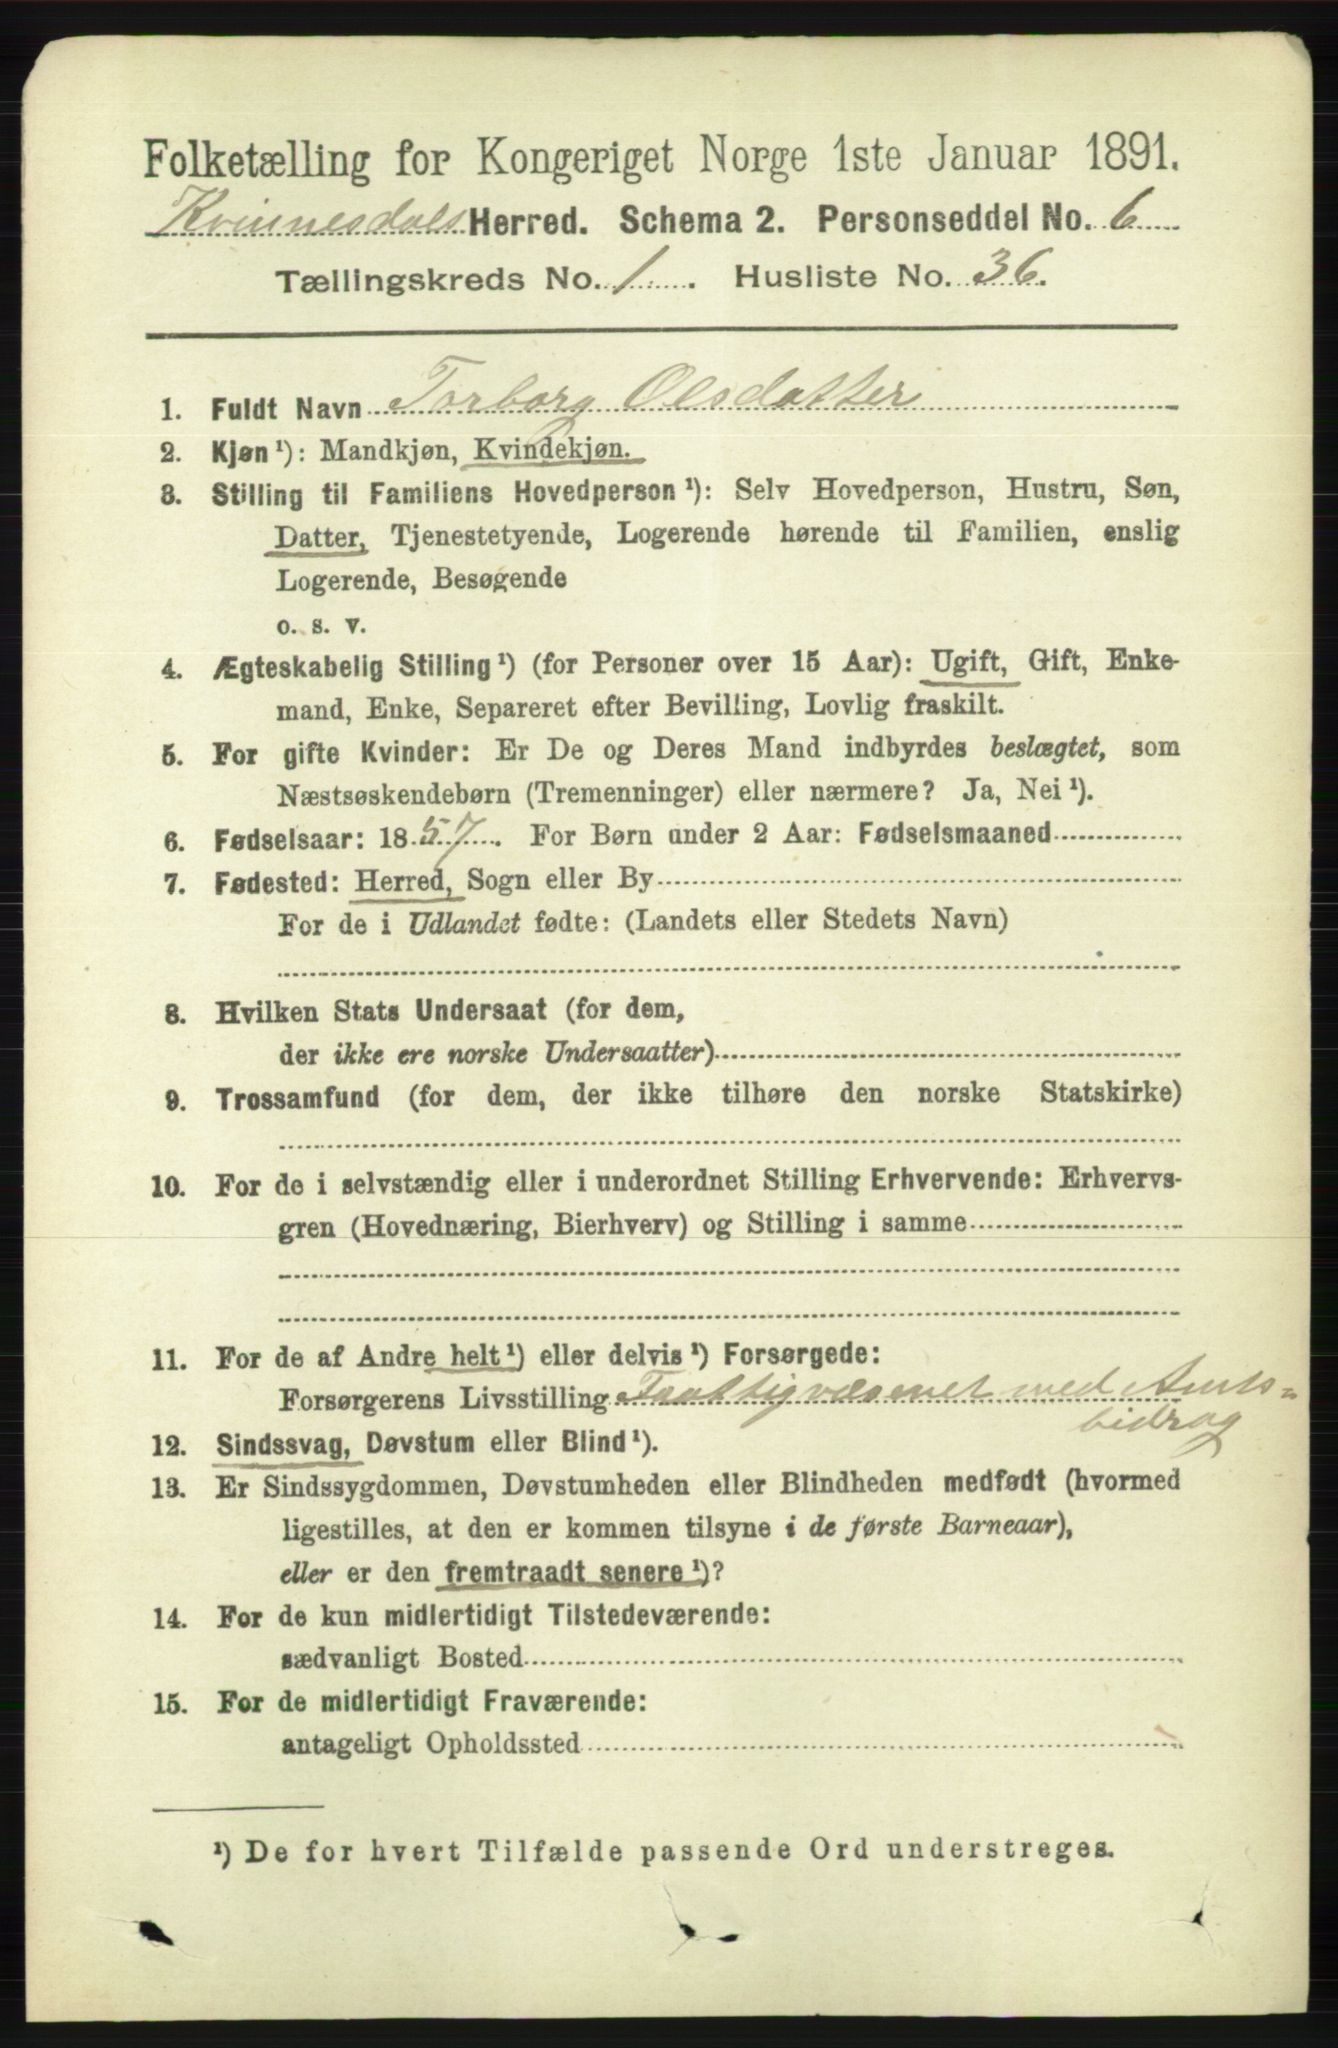 Folketælling for Kongeriget Norge 1ste Januar 1891.
Kvinnesdals Herred. Schema 2. Personseddel No. 6
Tællingskreds No. 1. Husliste No. 36.
1. Fuldt Navn Torborg Olsdatter
2. Kjøn¹): Mandkjøn, Kvindekjøn.
3. Stilling til Familiens Hovedperson¹): Selv Hovedperson, Hustru, Søn,
Datter, Tjenestetyende, Logerende hørende til Familien, enslig
Logerende, Besøgende
o. s. v.
4. Ægteskabelig Stilling¹) (for Personer over 15 Aar): Ugift, Gift, Enke-
mand, Enke, Separeret efter Bevilling, Lovlig fraskilt.
5. For gifte Kvinder: Er De og Deres Mand indbyrdes beslægtet, som
Næstsøskendebørn (Tremenninger) eller nærmere? Ja, Nei¹).
6. Fødselsaar: 1857. For Børn under 2 Aar: Fødselsmaaned
7. Fødested: Herred, Sogn eller By
For de i Udlandet fødte: (Landets eller Stedets Navn)
8. Hvilken Stats Undersaat (for dem,
der ikke ere norske Undersaatter)
9. Trossamfund (for dem, der ikke tilhøre den norske Statskirke)
10. For de i selvstændig eller i underordnet Stilling Erhvervende: Erhvervs-
gren (Hovednæring, Bierhverv) og Stilling i samme
11. For de af Andre helt¹) eller delvis¹) Forsørgede:
Forsørgerens Livsstilling Fattigvæsenet med Amts=
bidrag
12. Sindssvag, Døvstum eller Blind¹).
13. Er Sindssygdommen, Døvstumheden eller Blindheden medfødt (hvormed
ligestilles, at den er kommen tilsyne i de første Barneaar),
eller er den fremtraadt senere¹)?
14. For de kun midlertidigt Tilstedeværende:
sædvanligt Bosted
15. For de midlertidigt Fraværende:
antageligt Opholdssted
¹) De for hvert Tilfælde passende Ord understreges.